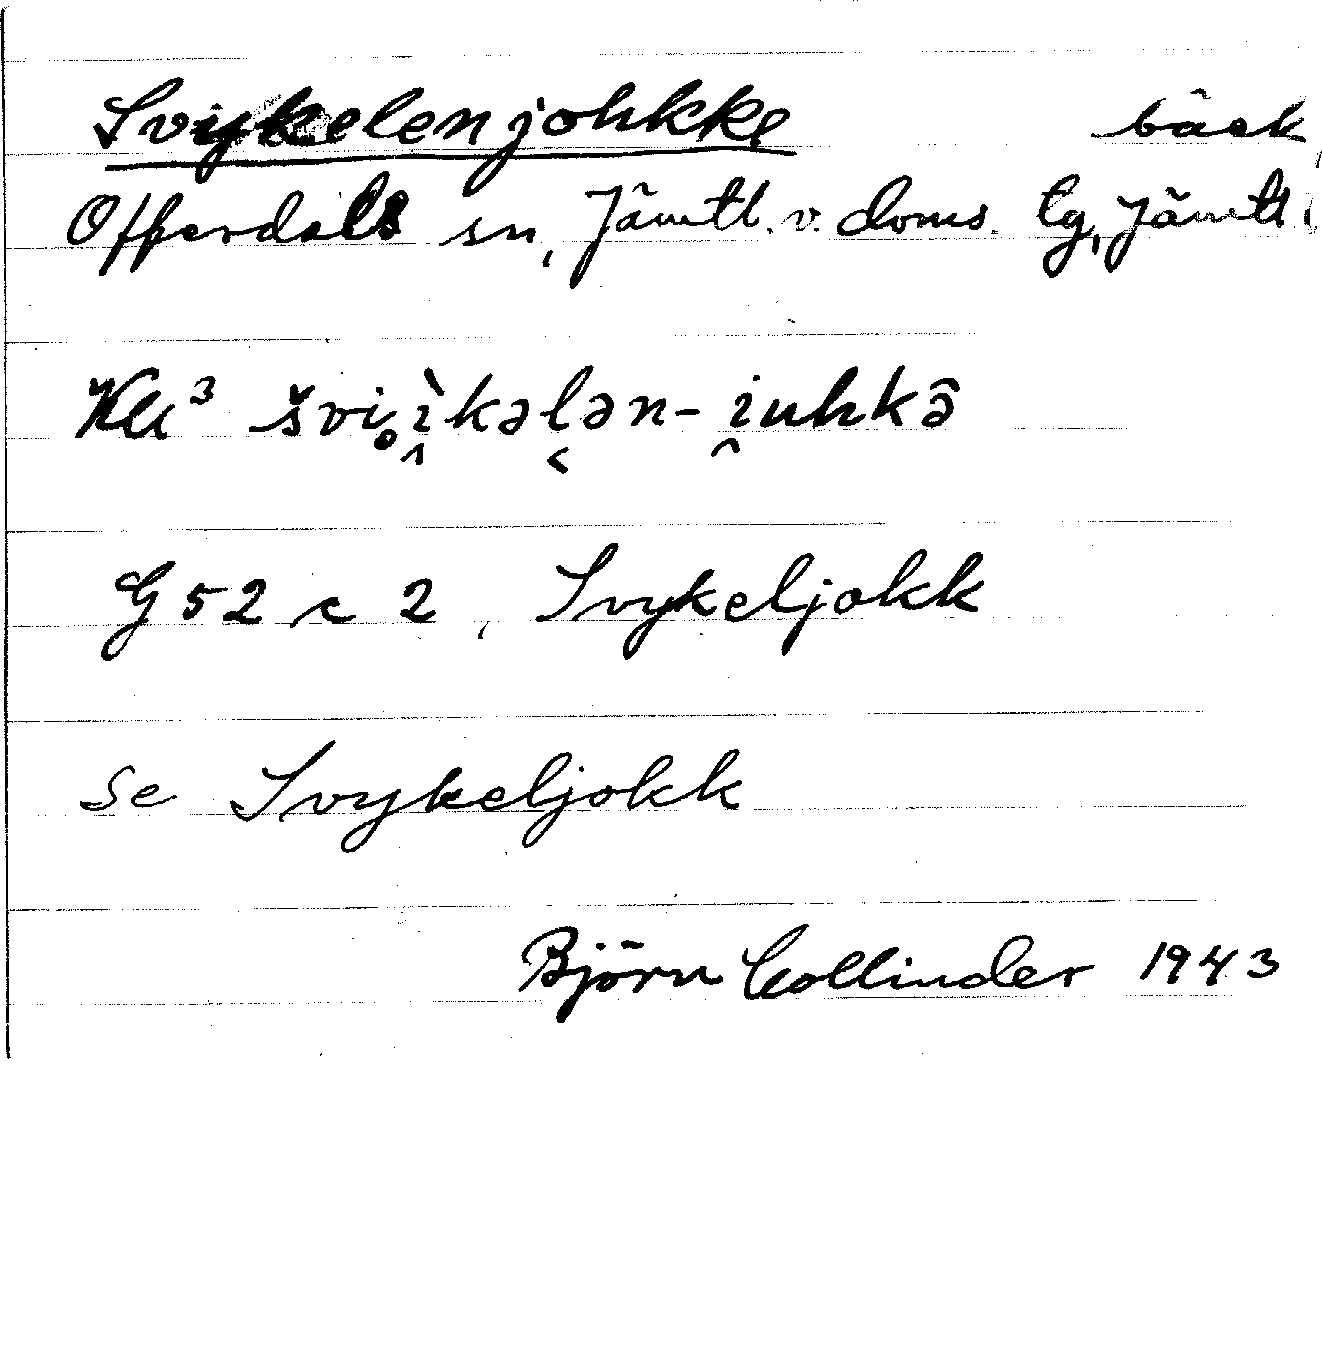 Svijkelenjohkke bäck,
Offerdals sn, Jämtl. v. doms. tg, Jämtl.
Kll³ švi̥ı̭̀kəl̬ən-i̯uhkə̂
G 52 c 2, Svykeljokk
Se Svykeljokk
Björn Collinder 1943